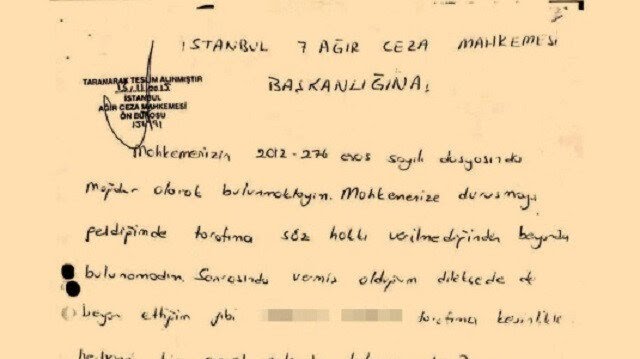 İSTANBUL 7 AĞIR CEZA MAHKEMESİ
BAŞKANLIĞINA,
TARANARAK TESLİM ALINMIŞTIR
İSTANBUL
AĞIR CEZA MAHKEMESİ
ÖN BÜROSU
Mahkemenizin 2012-276 esas sayılı dosyasında
mağdur olarak bulunmaktayım. Mahkemenize duruşmaya
geldiğimde tarafıma söz hakkı verilmediğinden beyanda
bulunamadım. Sonrasında vermiş olduğum dilekçede de
beyan ettiğim gibi tarafıma kesinlikle